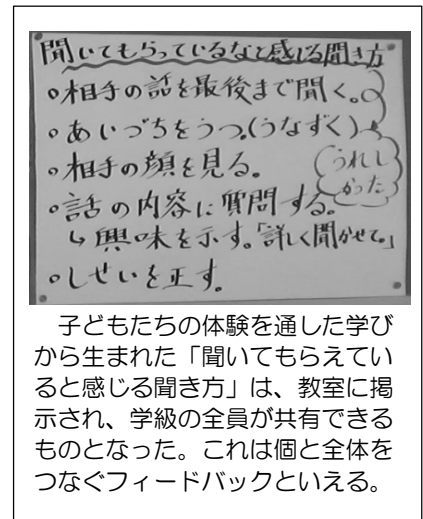 聞いてもらっているなと感じる聞き方
○相手の話を最後まで聞く。
○あいづちをうつ。(うなずく)
○相手の顔を見る。
うれし
かった
○話の内容に質問する。
↳興味を示す。「詳しく聞かせて。」
○しせいを正す。
子どもたちの体験を通した学び
から生まれた「聞いてもらえてい
ると感じる聞き方」は、教室に掲
示され、学級の全員が共有できる
ものとなった。これは個と全体を
つなぐフィードバックといえる。